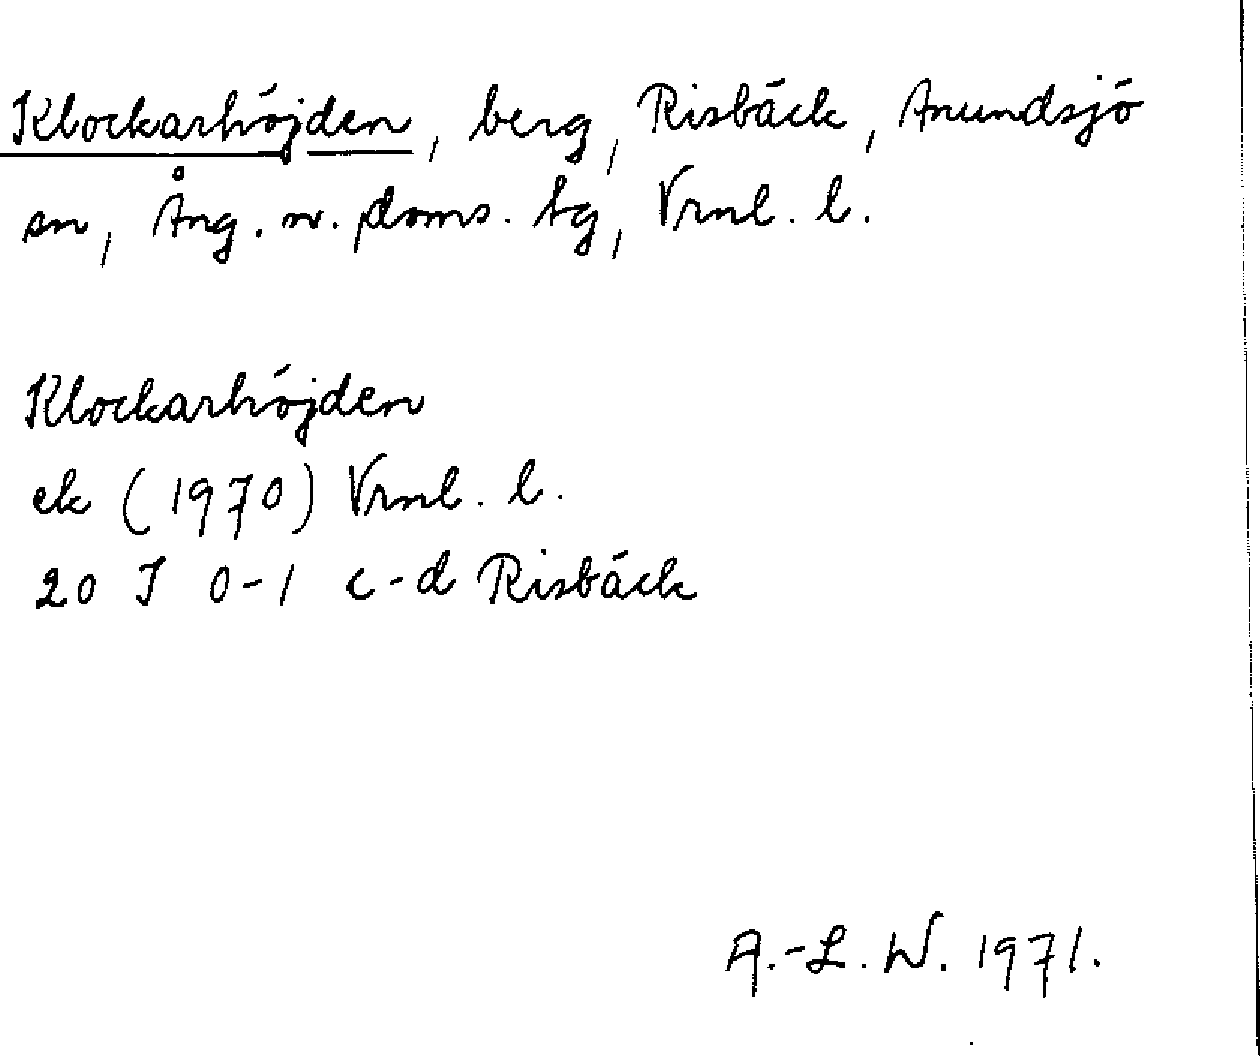 Klockarhöjden, berg, Risbäck, Anundsjö
sn, Ång. n. doms. tg, Vrnl. l.
Klockarhöjden
ek (1970) Vrnl. l.
20 J 0-1 c-d Risbäck
A.-L. W. 1971.